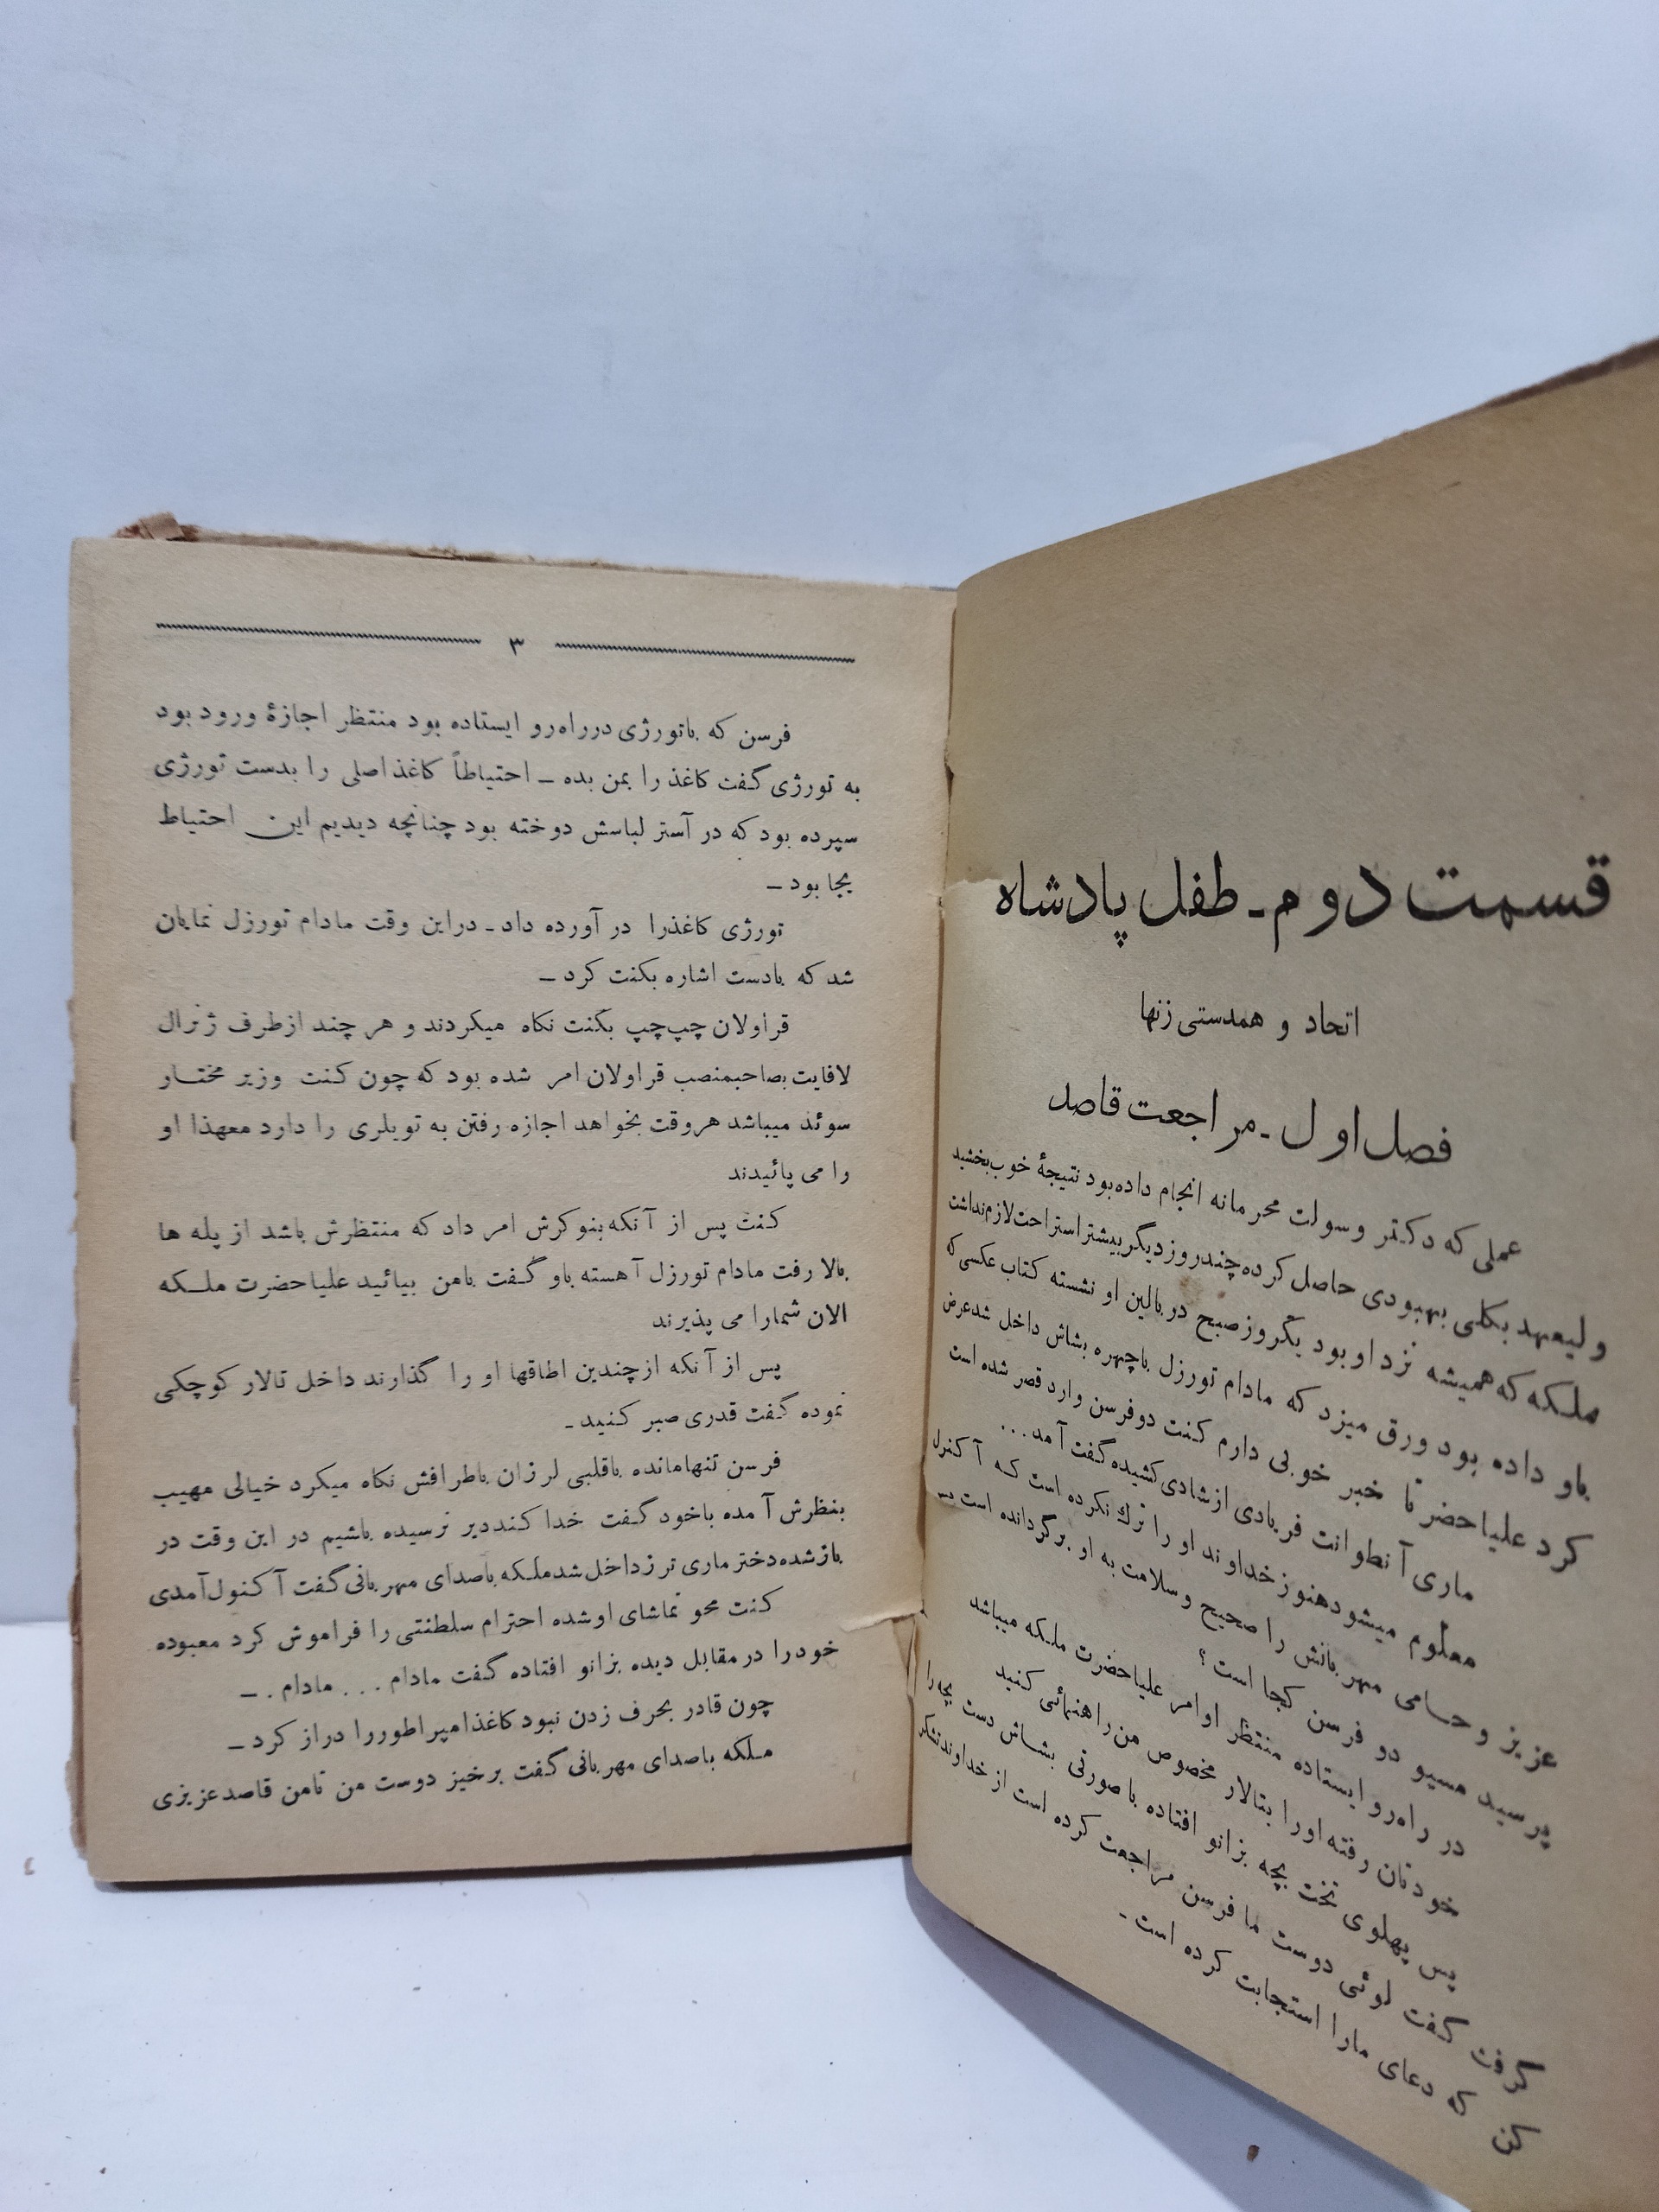 قسمت دوم ـ طفل پادشاه
اتحاد و همدستی زنها
فصل اول ـ مراجعت قاصد
عملی که دکتر وسولت محرمانه انجام داده بود نتیجهٔ خوب بخشید
ولیعهد بکلی بهبودی حاصل کرده چند روز دیگر بیشتر استراحت لازم نداشت
ملکه که همیشه نزد او بود یکروز صبح در بالین او نشسته کتاب عکسی که
باو داده بود ورق میزد که مادام تورزل باچهره بشاش داخل شد عرض
کرد علیاحضرتا خبر خوبی دارم کنت دوفرسن وارد قصر شده است
ماری آنطوانت فریادی از شادی کشیده گفت آمد...
معلوم میشود هنوز خداوند او را ترك نکرده است که آکنول
عزیز و حامی مهربانش را صحیح و سلامت به او برگردانده است پس
پرسید مسیو دو فرسن کجا است ؟
در راه‌رو ایستاده منتظر اوامر علیاحضرت ملکه میباشد
خودتان رفته اورا بتالار مخصوص من راهنمائی کنید
پس پهلوی تخت بچه بزانو افتاده با صورتی بشاش دست بچه را
گرفت گفت لوئی دوست ما فرسن مراجعت کرده است از خداوند تشکر
کن که دعای مارا استجابت کرده است ـ
۳
فرسن که باتورژی درراه‌رو ایستاده بود منتظر اجازهٔ ورود بود
به تورژی گفت کاغذ را بمن بده ـ احتیاطاً کاغذ اصلی را بدست تورژی
سپرده بود که در آستر لباسش دوخته بود چنانچه دیدیم این احتیاط
بجا بود ـ
تورژی کاغذرا در آورده داد ـ دراین وقت مادام تورزل نمایان
شد که بادست اشاره بکنت کرد ـ
قراولان چپ‌چپ بکنت نکاه میکردند و هر چند ازطرف ژنرال
لافایت بصاحبمنصب قراولان امر شده بود که چون کنت وزیر مختار
سوئد میباشد هروقت بخواهد اجازه رفتن به تویلری را دارد معهذا او
را می پائیدند
کنت پس از آنکه بنوکرش امر داد که منتظرش باشد از پله ها
بالا رفت مادام تورزل آهسته باو گفت بامن بیائید علیاحضرت ملکه
الان شمارا می پذیرند
پس از آنکه ازچندین اطاقها او را گذارند داخل تالار کوچکی
نموده گفت قدری صبر کنید ـ
فرسن تنهامانده باقلبی لرزان باطرافش نکاه میکرد خیالی مهیب
بنظرش آمده باخود گفت خدا کند دیر نرسیده باشیم در این وقت در
بازشده دختر ماری ترز داخل شد ملکه باصدای مهربانی گفت آکنول آمدی
کنت محو تماشای اوشده احترام سلطنتی را فراموش کرد معبوده
خودرا درمقابل دیده بزانو افتاده گفت مادام ... مادام . ـ
چون قادر بحرف زدن نبود کاغذ امپراطوررا دراز کرد ـ
ملکه باصدای مهربانی گفت برخیز دوست من تامن قاصد عزیزی